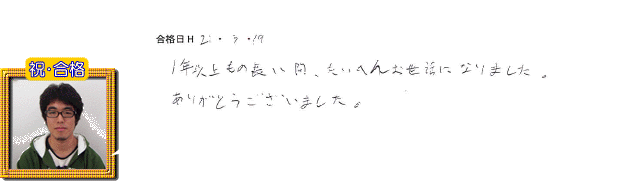 合格日 H 21・3・19
祝・合格
1年以上もの長い間、たいへんお世話になりました。
ありがとうございました。